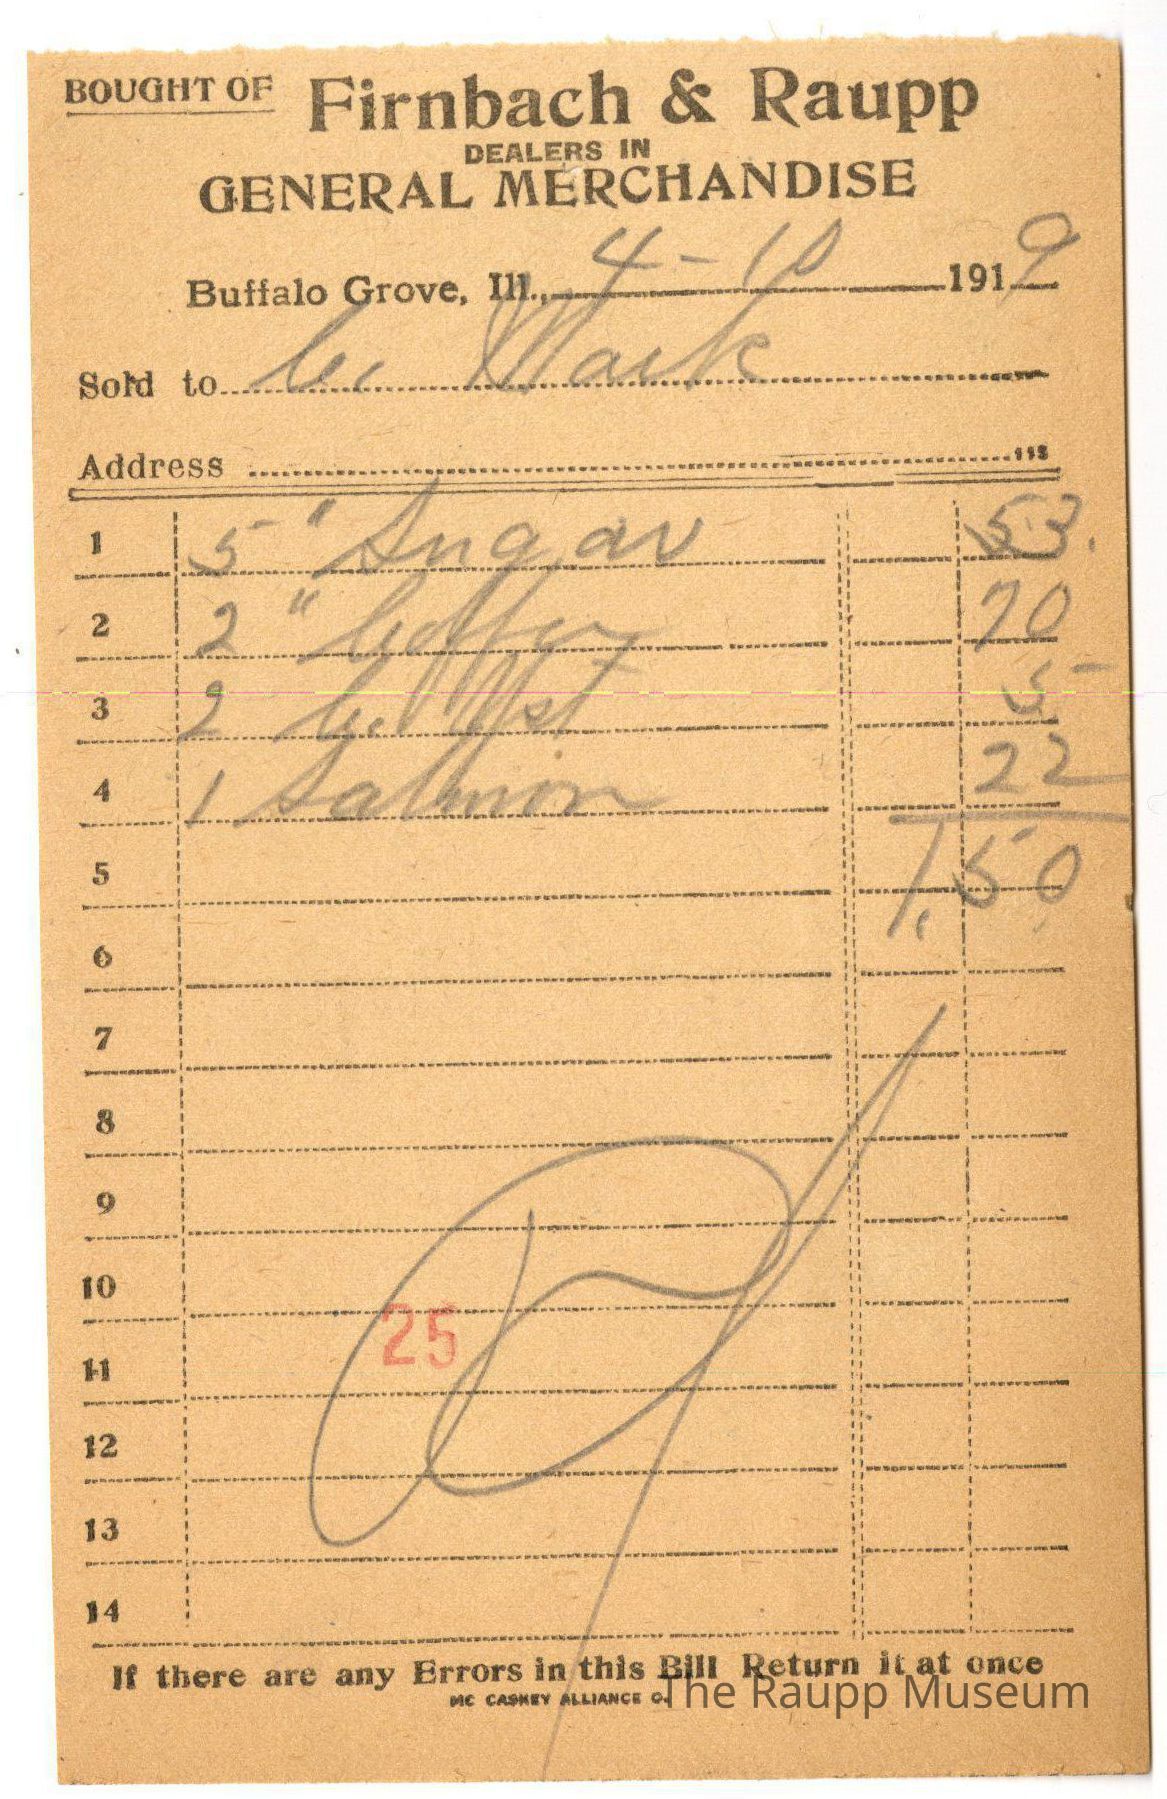 BOUGHT OF Firnbach & Raupp
DEALERS IN
GENERAL MERCHANDISE
Buffalo Grove, Ill., 4-10 1919
Sold to C. Mark
Address
1 5 " Sugar 53.
2 2 " Coffey 70
3 2 5
4 1 Salmon 22
5 1.50
6
7
8
9
10
25
11
12
13
14
If there are any Errors in this Bill Return it at once
MC CASKEY ALLIANCE O.
The Raupp Museum